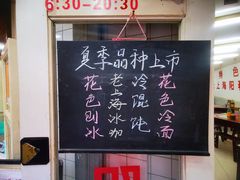 6:30-20:30
夏季品种上市
花色刨冰
老上海冰咖
冷馄饨
花色冷面